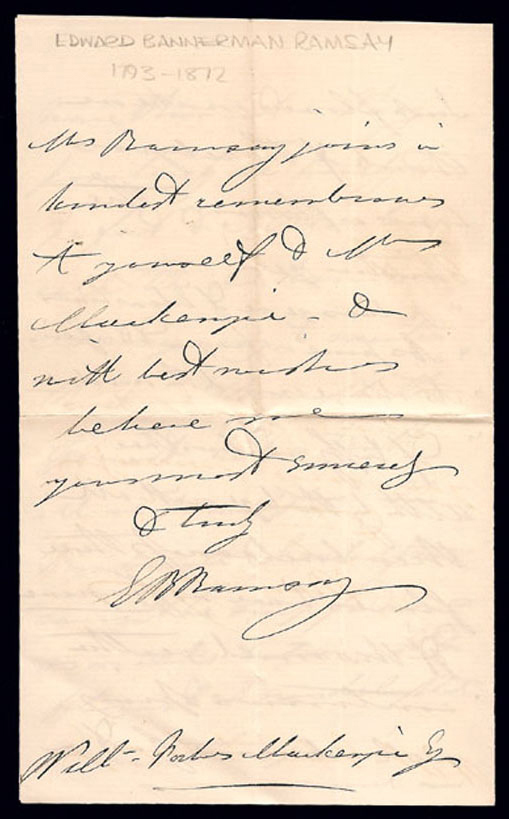 EDWARD BANNERMAN RAMSAY
1793-1872
Mrs Ramsay joins in
kindest remembrances
to yourself & Mrs
Mackenzie - &
with best wishes
believe me
yours most sincerely
& truly
E B Ramsay
Willm Forbes Mackenzie Esq